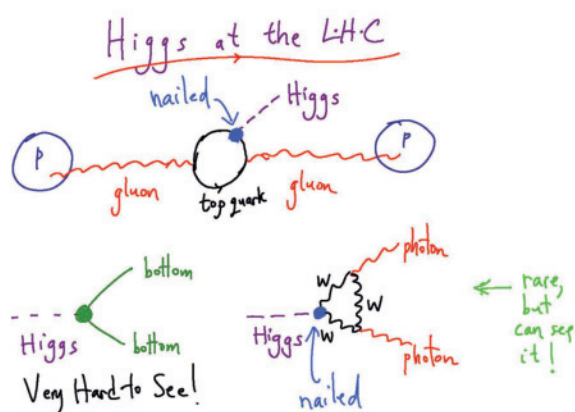 Higgs at the L·H·C
nailed
Higgs
P
P
gluon
gluon
top quark
bottom
bottom
Higgs
Very Hard to See!
photon
W
W
W
Higgs
photon
nailed
rare,
but
can see
it!